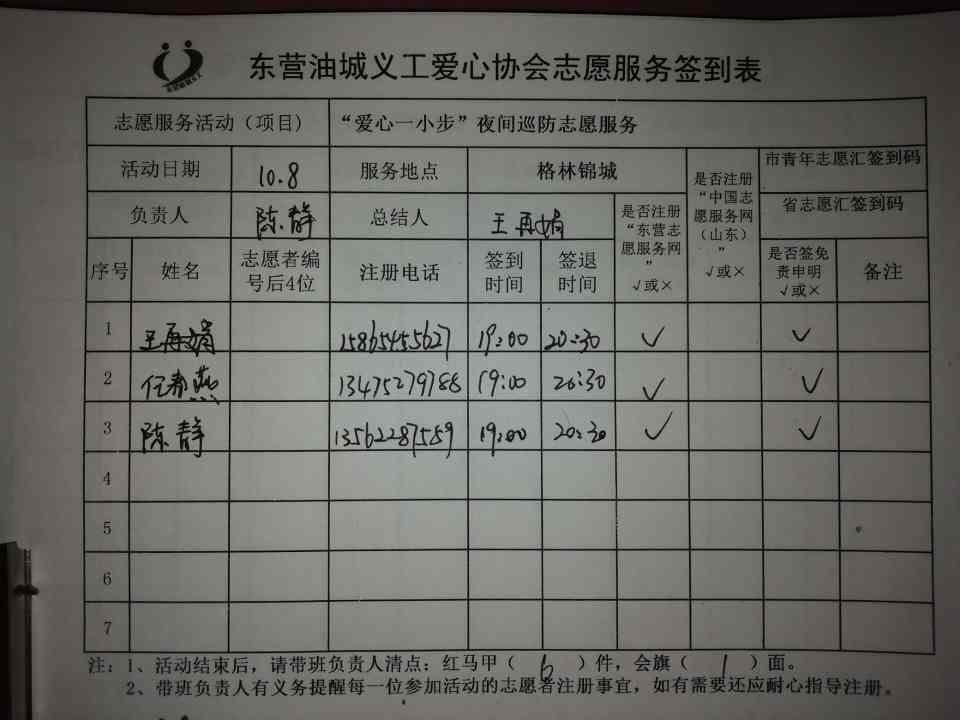 东营油城义工爱心协会志愿服务签到表
志愿服务活动（项目） “爱心一小步”夜间巡防志愿服务
活动日期 10.8 服务地点 格林锦城 是否注册“中国志愿服务网（山东）” √或× 市青年志愿汇签到码
负责人 陈静 总结人 王再娟 是否注册“东营志愿服务网” √或× 省志愿汇签到码
序号 姓名 志愿者编号后4位 注册电话 签到时间 签退时间 是否签免责申明 √或× 备注
1 王再娟 15865455627 19:00 20:30 ✓ ✓
2 任春燕 13475279788 19:00 20:30 ✓ ✓
3 陈静 13562287559 19:00 20:30 ✓ ✓
4
5
6
7
注：1、活动结束后，请带班负责人清点：红马甲（ 6 ）件，会旗（ 1 ）面。
2、带班负责人有义务提醒每一位参加活动的志愿者注册事宜，如有需要还应耐心指导注册。